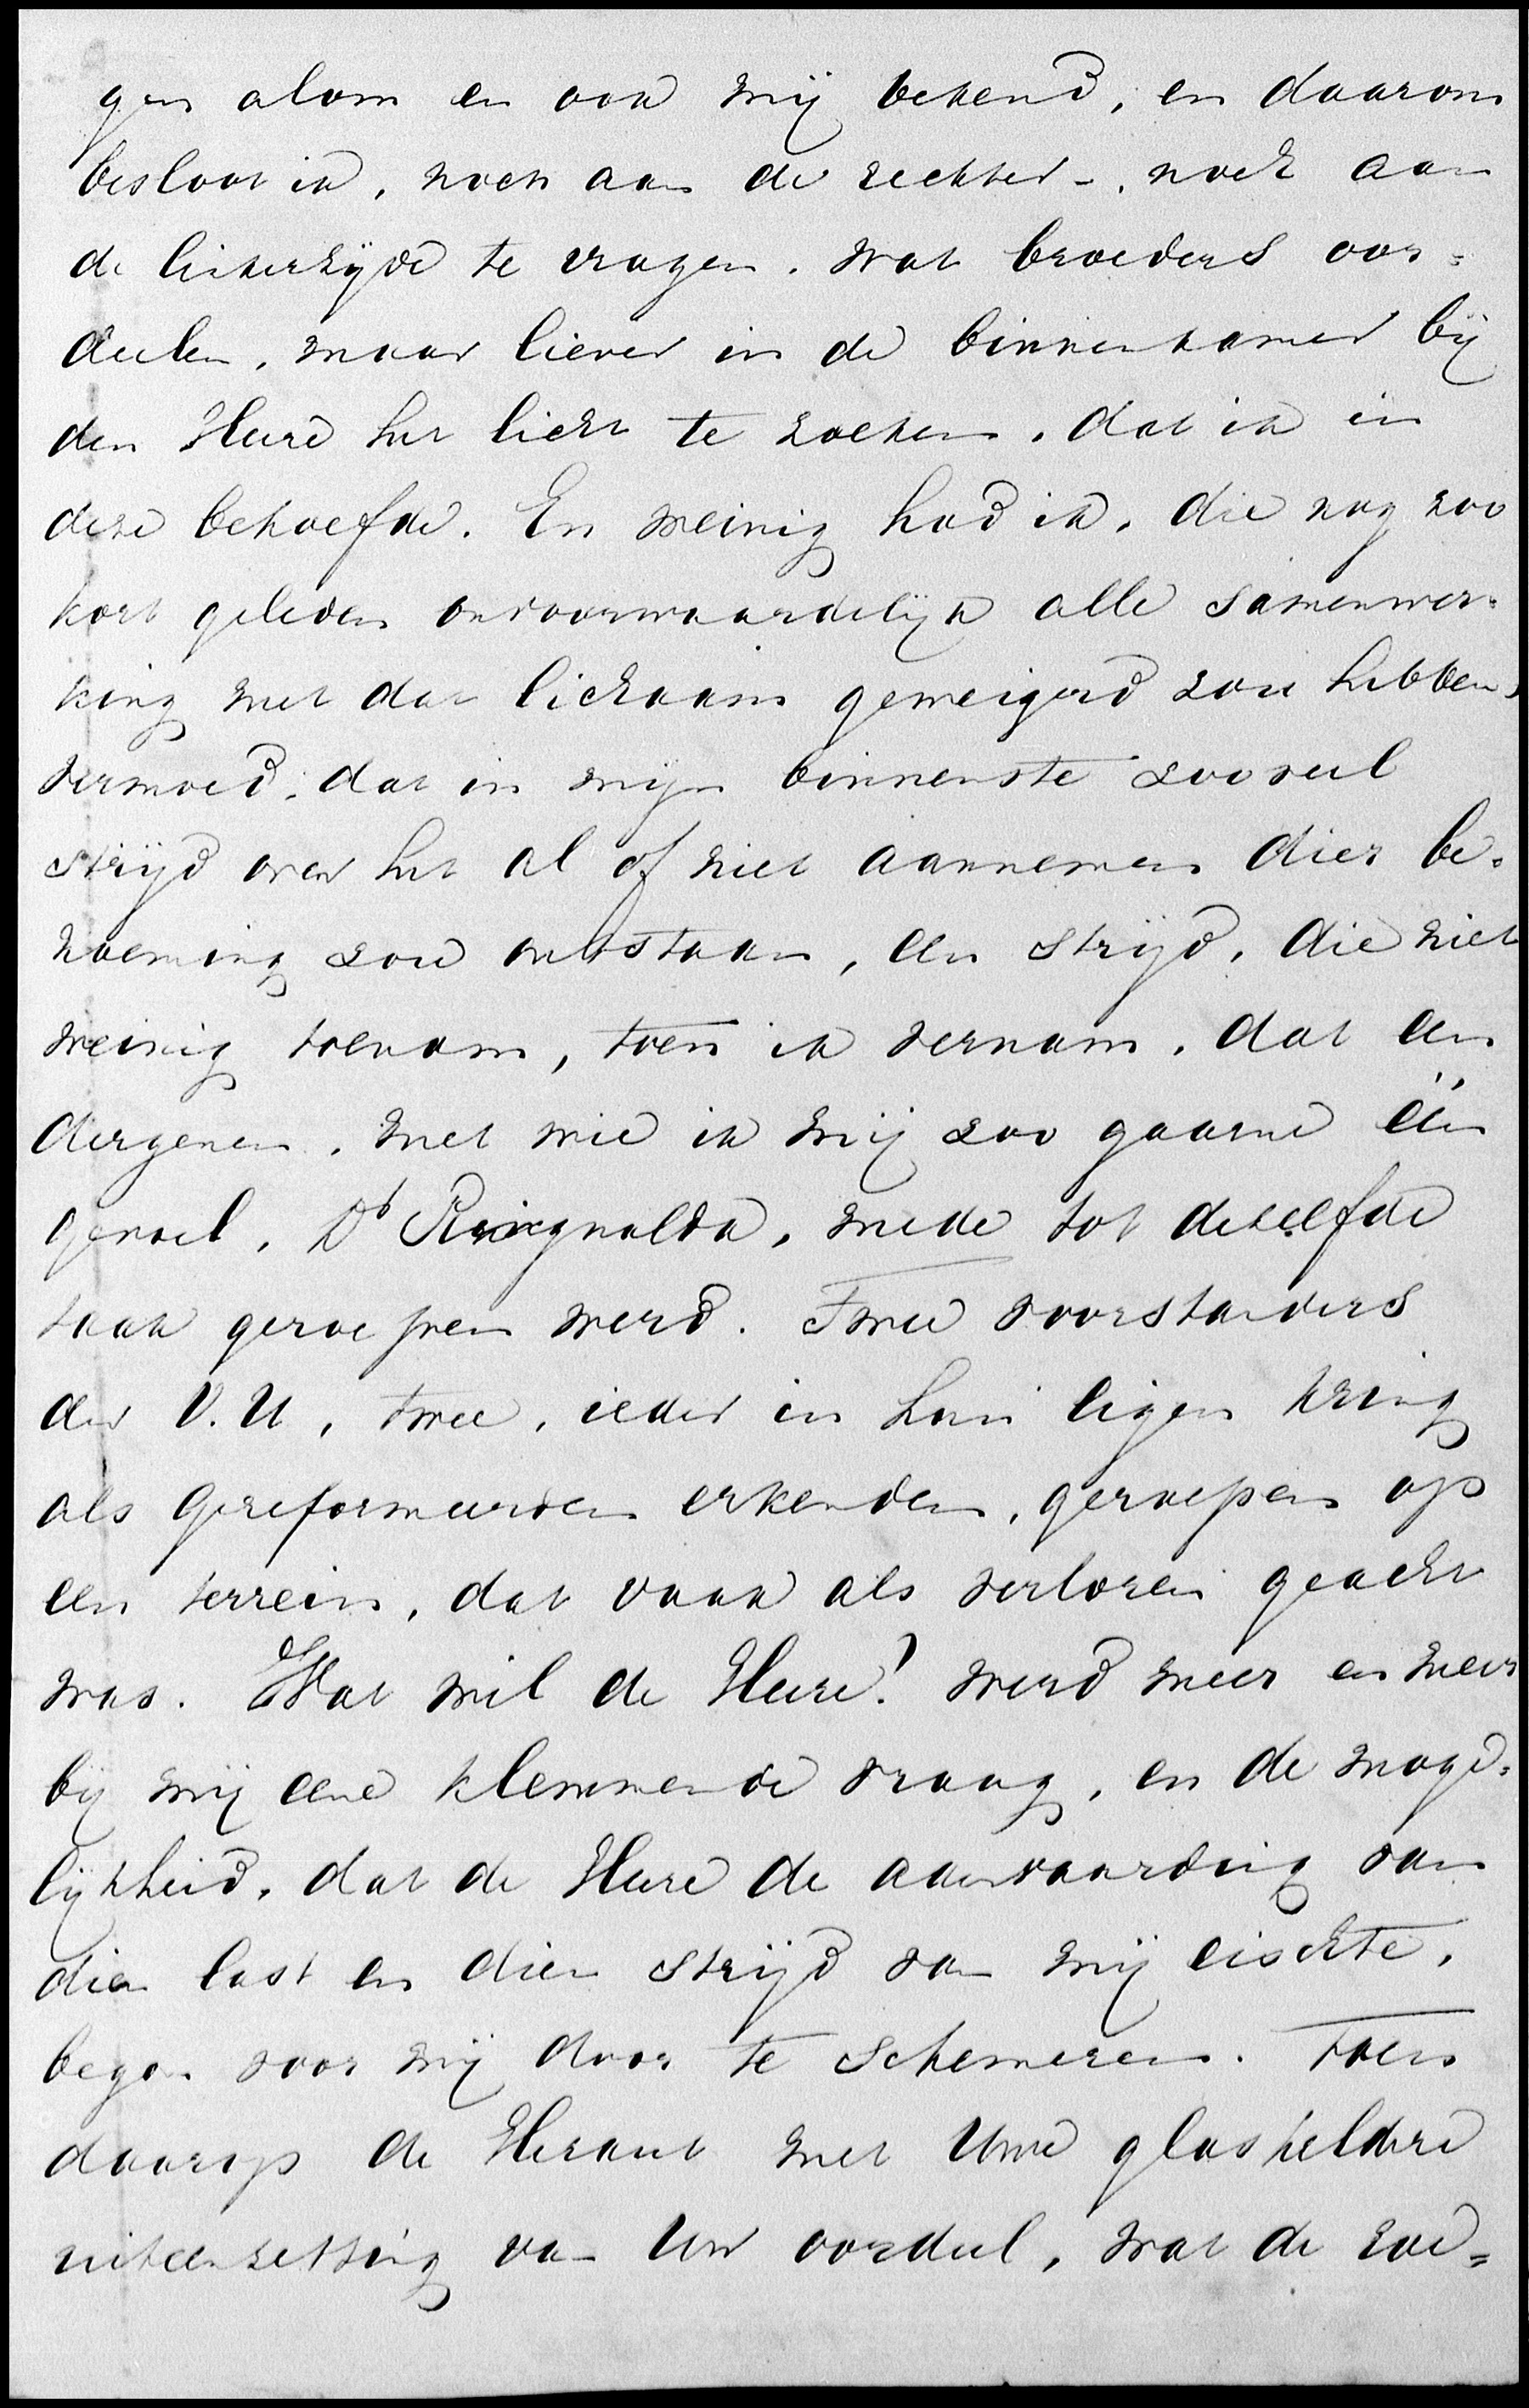 gen alom en ook mij bekend, en daarom
besloot ik, noch aan de rechter-, noch aan
de linkerzijde te vragen, wat broeders oor=
deelen, maar liever in de binnenkamer bij
den Heere het licht te zoeken, dat ik in
deze behoefde. En weinig had ik, die nog zoo
kort geleden onvoorwaardelijk alle samenwer=
king met dat lichaam geweigerd zou hebben,
vermoed, dat in mijn binnenste zooveel
strijd over het al of niet aannemen dier be=
noeming zou ontstaan, een strijd, die niet
weinig toenam, toen ik vernam, dat een
dergenen, met wie ik mij zoo gaarne één
gevoel, Ds Ringnalda, mede tot dezelfde
taak geroepen werd. Twee voorstanders
der V.U, twee, ieder in hun eigen kring
als Gereformeerden erkenden, geroepen op
een terrein, dat vaak als verloren geacht
was. Wat wil de Heere? werd meer en meer
bij mij eene klemmende vraag, en de moge=
lijkheid, dat de Heere de aanvaarding van
dien last en dien strijd van mij eischte,
begon voor mij door te schemeren. Toen
daarop de Heraut met Uwe glasheldere
uiteenzetting van Uw oordeel, wat de roe=